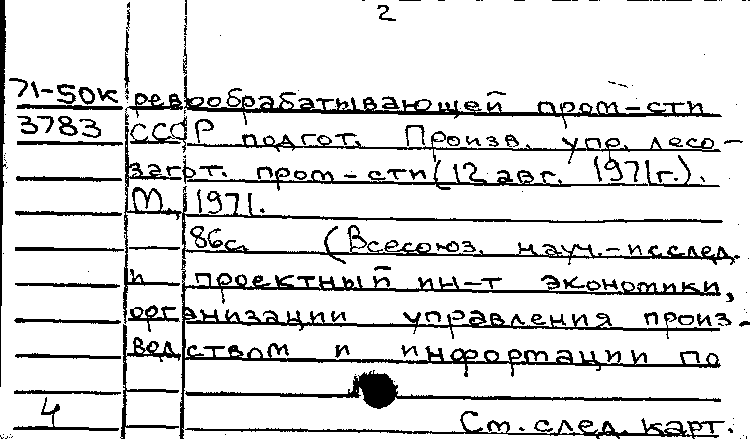 2
71-50к ревообрабатывающей пром-сти
3783 СССР подгот. Произв. упр. лесо-
загот. пром-сти (12 авг. 1971г.).
М., 1971.
86с. (Всесоюз. науч.-исслед.
и проектный ин-т экономики,
организации управления произ-
водством и информации по
4 См. след. карт.